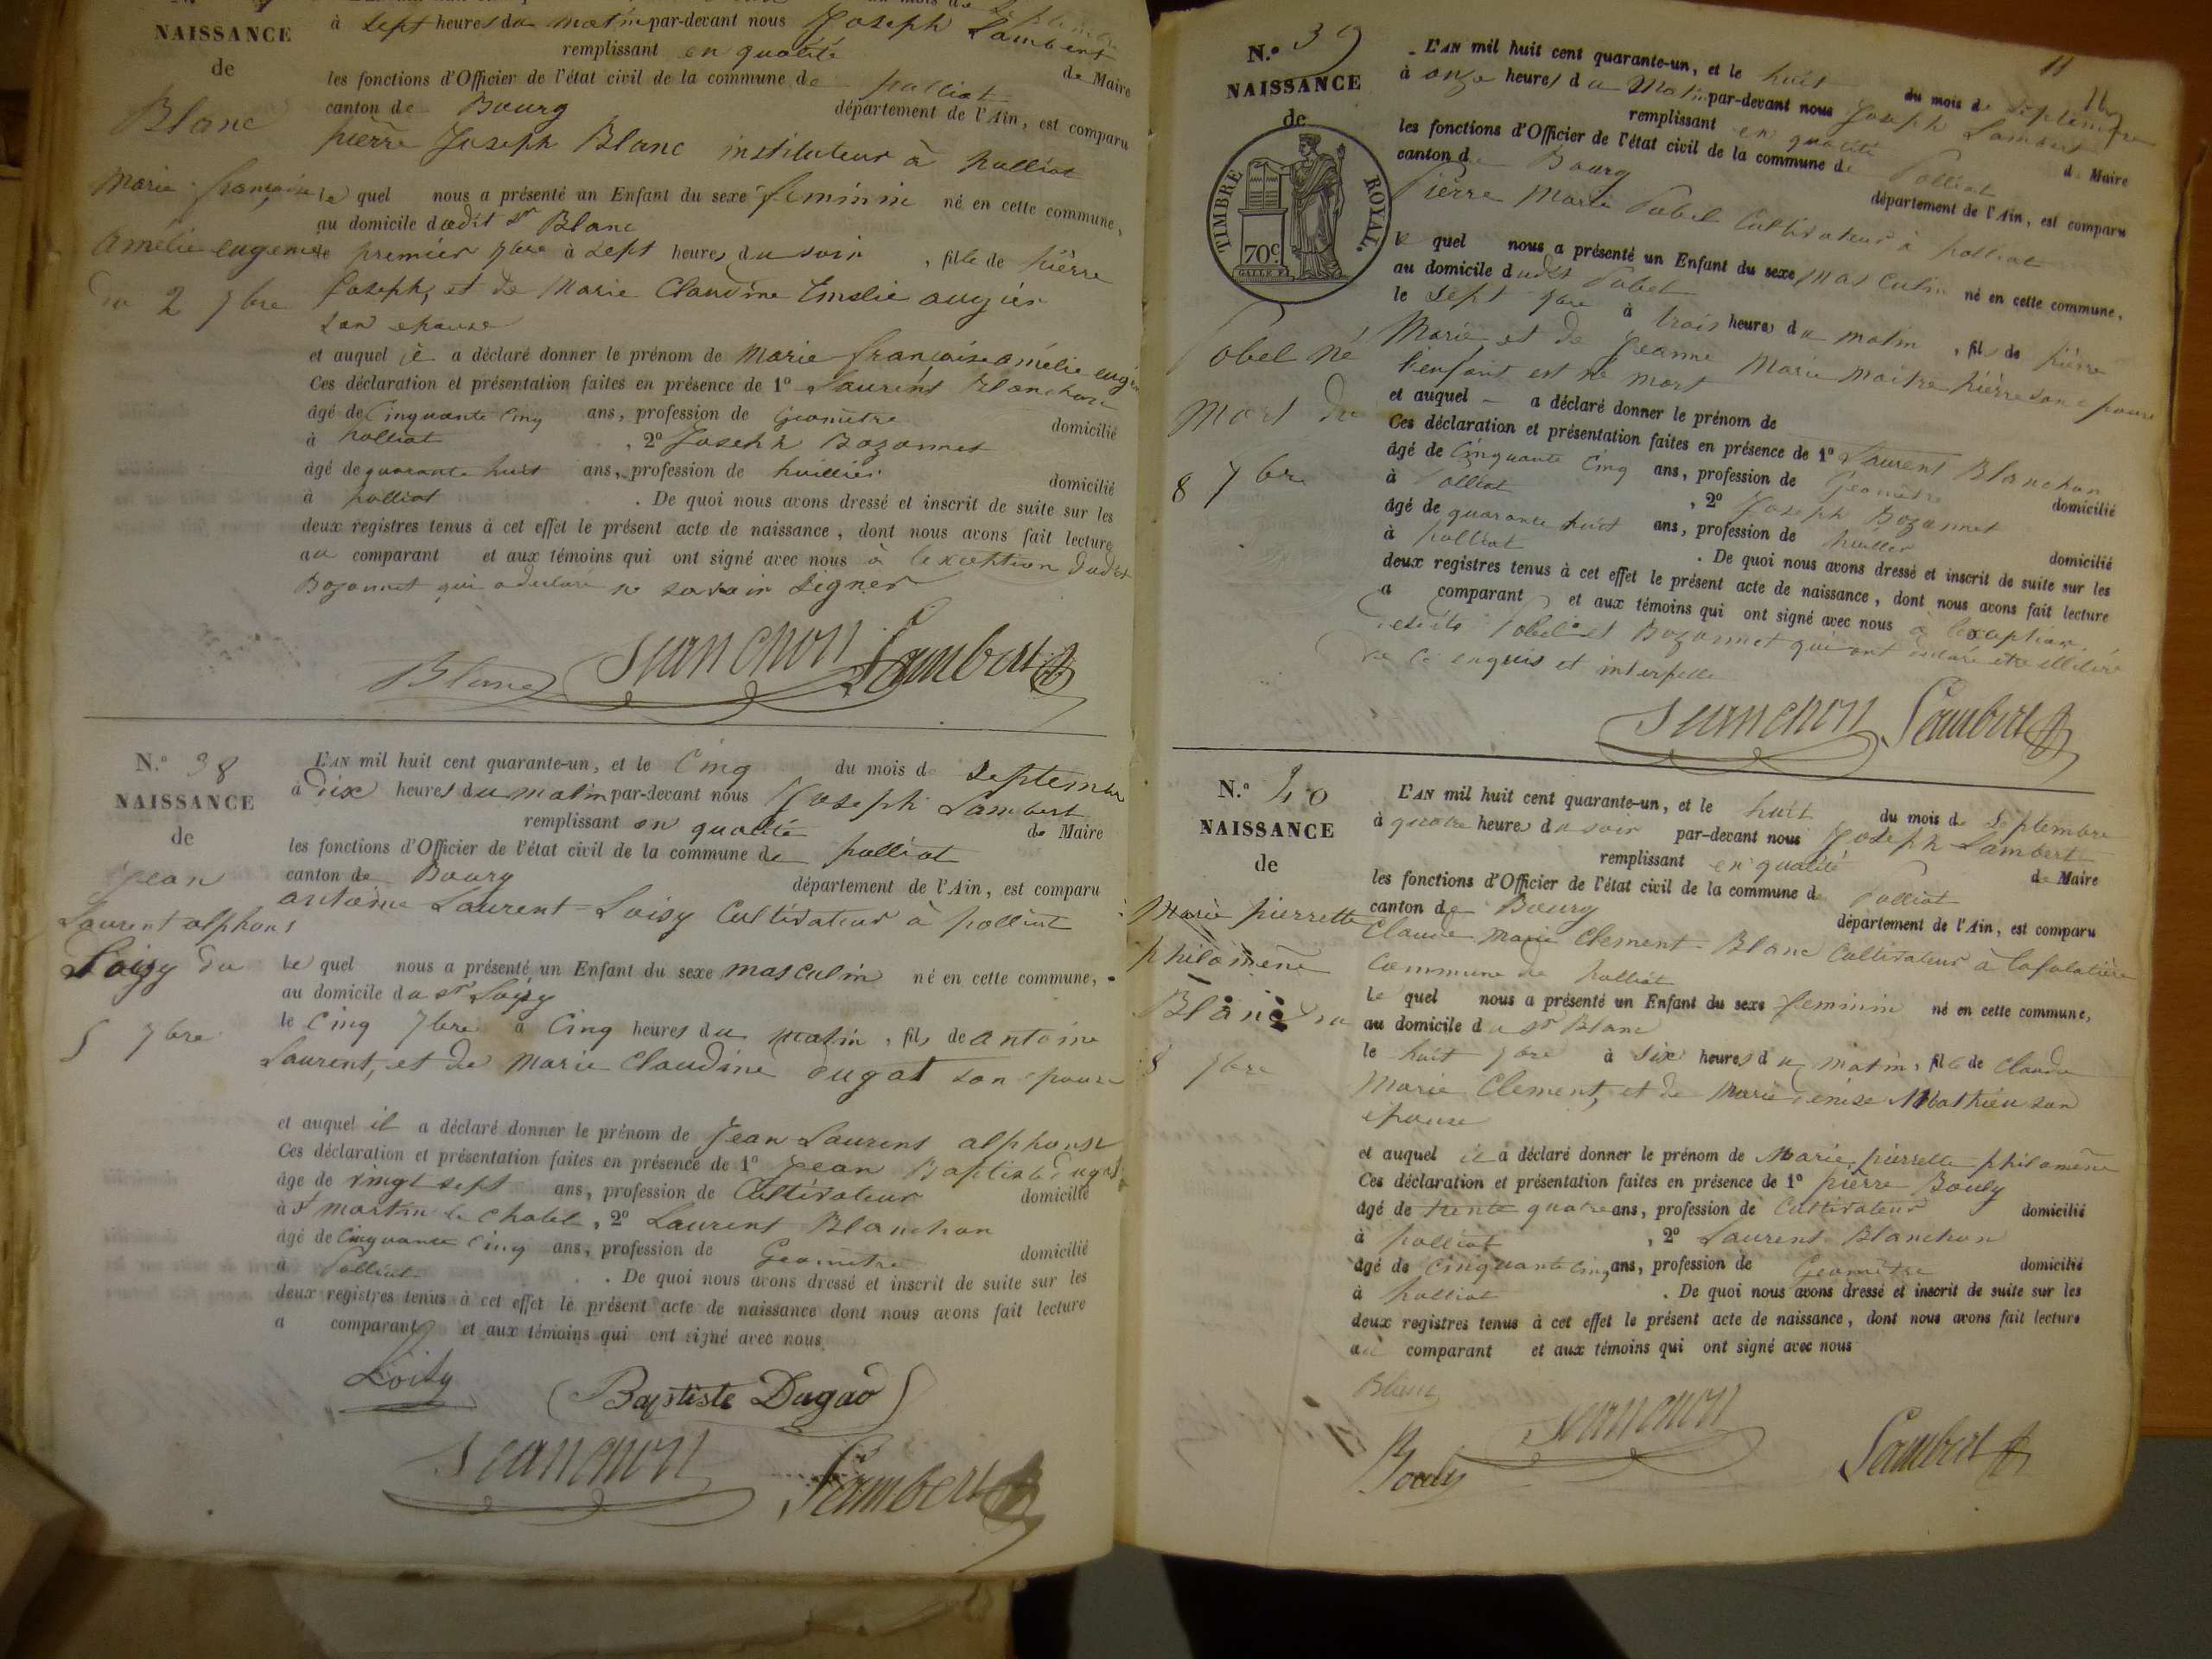 NAISSANCE
de
Blanc
Marie françoise
Amélie eugenie
du 2 7bre
à sept heures du matin par-devant nous Joseph Lambert
remplissant en qualité de Maire
les fonctions d'Officier de l'état civil de la commune de polliat
canton de Bourg département de l'Ain, est comparu
pierre Joseph Blanc instituteur à polliat
le quel nous a présenté un Enfant du sexe feminin né en cette commune,
au domicile dudit sr Blanc
le premier 7bre à sept heures du soir, fille de pierre
Joseph, et de Marie Claudine Emelie augier
son epouse
et auquel il a déclaré donner le prénom de Marie françoise amélie eugenie
Ces déclaration et présentation faites en présence de 1º Laurent Blanchon
âgé de Cinquante Cinq ans, profession de Geomètre domicilié
à polliat, 2º Joseph Bozonnet
âgé de quarante huit ans, profession de huillier domicilié
à polliat. De quoi nous avons dressé et inscrit de suite sur les
deux registres tenus à cet effet le présent acte de naissance, dont nous avons fait lecture
au comparant et aux témoins qui ont signé avec nous à lexception dudit
Bozonnet qui a declaré ne savoir signer
Blanc Lambert
N.º 38
NAISSANCE
de
Jean
Laurent alphons
Loisy du
5 7bre
L'AN mil huit cent quarante-un, et le Cinq du mois de septembre
à Dix heures du matin par-devant nous Joseph Lambert
remplissant en qualité de Maire
les fonctions d'Officier de l'état civil de la commune de polliat
canton de Bourg département de l'Ain, est comparu
antoine Laurent Loisy Cultivateur à polliat
le quel nous a présenté un Enfant du sexe masculin né en cette commune,
au domicile du sr Loisy
le Cinq 7bre à Cinq heures du matin, fils de antoine
Laurent, et de Marie Claudine Dugat son epouse
et auquel il a déclaré donner le prénom de Jean Laurent alphonse
Ces déclaration et présentation faites en présence de 1º Jean Baptiste Dugat
âgé de vingt sept ans, profession de Cultivateur domicilié
à St martin le chatel, 2º Laurent Blanchon
âgé de Cinquante Cinq ans, profession de Geometre domicilié
à Polliat. De quoi nous avons dressé et inscrit de suite sur les
deux registres tenus à cet effet le présent acte de naissance dont nous avons fait lecture
a comparant et aux témoins qui ont signé avec nous
Loisy Baptiste Dugad
Lambert
N.º 39
NAISSANCE
de
TIMBRE ROYAL.
70c.
Pobel né
Mort du
8 7bre
11
L'AN mil huit cent quarante-un, et le huit du mois de septembre
à onze heures du Matin par-devant nous Joseph Lambert
remplissant en qualité de Maire
les fonctions d'Officier de l'état civil de la commune de Polliat
canton de Bourg département de l'Ain, est comparu
Pierre Marie Pobel Cultivateur à polliat
le quel nous a présenté un Enfant du sexe masculin né en cette commune,
au domicile dudit Pobel
le sept 7bre à trois heures du matin, fils de pierre
Marie et de Jeanne Marie Maitrepierre son epouse
l'enfant est né mort
et auquel a déclaré donner le prénom de
Ces déclaration et présentation faites en présence de 1º Laurent Blanchon
âgé de Cinquante Cinq ans, profession de Geomètre domicilié
à Polliat, 2º Joseph Bozonnet
âgé de quarante huit ans, profession de huillier domicilié
à polliat. De quoi nous avons dressé et inscrit de suite sur les
deux registres tenus à cet effet le présent acte de naissance, dont nous avons fait lecture
a comparant et aux témoins qui ont signé avec nous à lexception
desdits Pobel et Bozonnet qui ont déclaré être illitéré
de ce enquis et interpellé
Lambert
N.º 40
NAISSANCE
de
Marie pierrette
philomène
Blanc du
8 7bre
L'AN mil huit cent quarante-un, et le huit du mois de septembre
à quatre heures du soir par-devant nous Joseph Lambert
remplissant en qualité de Maire
les fonctions d'Officier de l'état civil de la commune de Polliat
canton de Bourg département de l'Ain, est comparu
Claude Marie Clement Blanc Cultivateur à
Commune de polliat
le quel nous a présenté un Enfant du sexe feminin né en cette commune,
au domicile du sr Blanc
le huit 7bre à six heures du matin, fille de Claude
Marie Clement, et de Marie denise Mathieu son
epouse
et auquel il a déclaré donner le prénom de Marie pierrette philomène
Ces déclaration et présentation faites en présence de 1º pierre Bouly
âgé de trente quatre ans, profession de Cultivateur domicilié
à polliat, 2º Laurent Blanchon
âgé de Cinquante Cinq ans, profession de Geomètre domicilié
à polliat. De quoi nous avons dressé et inscrit de suite sur les
deux registres tenus à cet effet le présent acte de naissance, dont nous avons fait lecture
au comparant et aux témoins qui ont signé avec nous
Blanc
Bouly Lambert